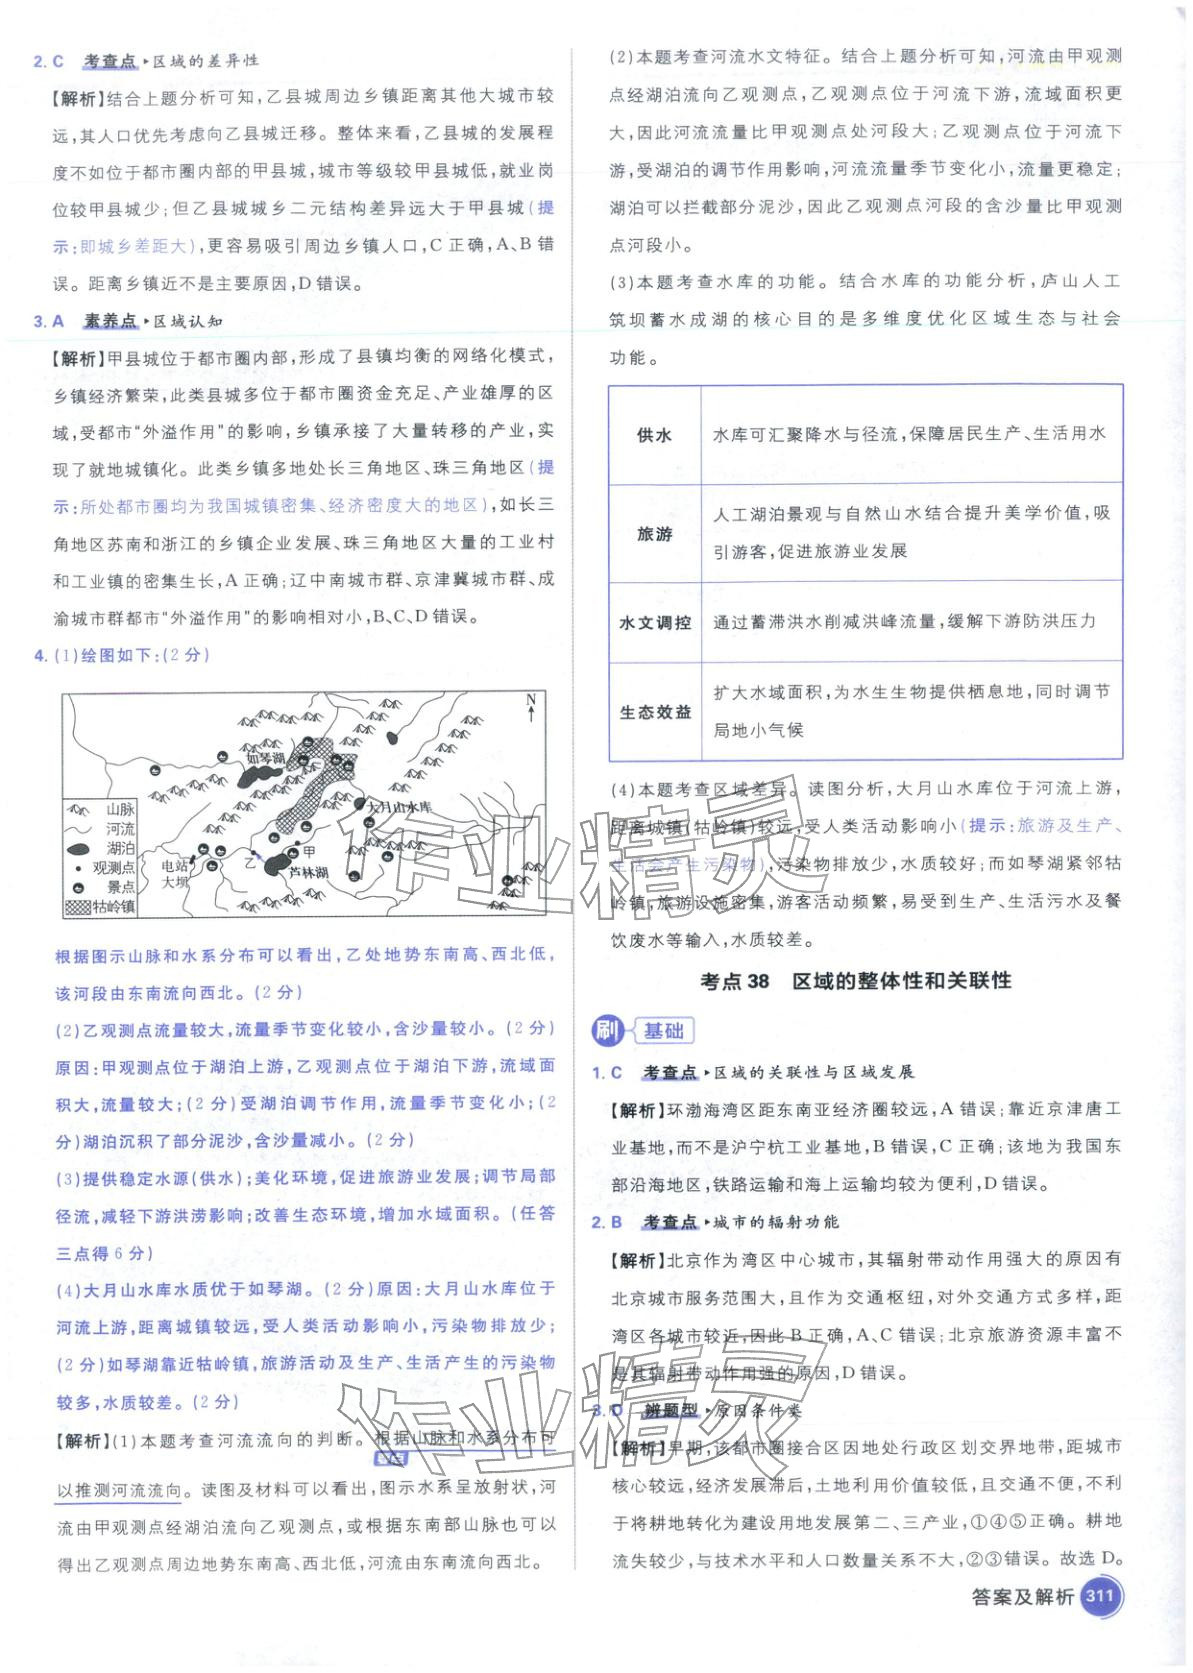 2. C 考查点·区域的差异性
【解析】结合上题分析可知,乙县城周边乡镇距离其他大城市较
远,其人口优先考虑向乙县城迁移。整体来看,乙县城的发展程
度不如位于都市圈内部的甲县城,城市等级较甲县城低,就业岗
位较甲县城少;但乙县城城乡二元结构差异远大于甲县城(提
示:即城乡差距大),更容易吸引周边乡镇人口,C正确,A、B错
误。距离乡镇近不是主要原因,D错误。
3. A 素养点·区域认知
【解析】甲县城位于都市圈内部,形成了县镇均衡的网络化模式,
乡镇经济繁荣,此类县城多位于都市圈资金充足、产业雄厚的区
域,受都市“外溢作用”的影响,乡镇承接了大量转移的产业,实
现了就地城镇化。此类乡镇多地处长三角地区、珠三角地区(提
示:所处都市圈均为我国城镇密集、经济密度大的地区),如长三
角地区苏南和浙江的乡镇企业发展、珠三角地区大量的工业村
和工业镇的密集生长,A正确;辽中南城市群、京津冀城市群、成
渝城市群都市“外溢作用”的影响相对小,B、C、D错误。
4. (1)绘图如下:(2分)
N
如琴湖
大月山水库
甲
乙
芦林湖
电站
大坝
山脉
河流
湖泊
观测点
景点
牯岭镇
根据图示山脉和水系分布可以看出,乙处地势东南高、西北低,
该河段由东南流向西北。(2分)
(2)乙观测点流量较大,流量季节变化较小,含沙量较小。(2分)
原因:甲观测点位于湖泊上游,乙观测点位于湖泊下游,流域面
积大,流量较大;(2分)受湖泊调节作用,流量季节变化小;(2
分)湖泊沉积了部分泥沙,含沙量减小。(2分)
(3)提供稳定水源(供水);美化环境,促进旅游业发展;调节局部
径流,减轻下游洪涝影响;改善生态环境,增加水域面积。(任答
三点得6分)
(4)大月山水库水质优于如琴湖。(2分)原因:大月山水库位于
河流上游,距离城镇较远,受人类活动影响小,污染物排放少;
(2分)如琴湖靠近牯岭镇,旅游活动及生产、生活产生的污染物
较多,水质较差。(2分)
【解析】(1)本题考查河流流向的判断。根据山脉和水系分布可
以推测河流流向。读图及材料可以看出,图示水系呈放射状,河
流由甲观测点经湖泊流向乙观测点,或根据东南部山脉也可以
得出乙观测点周边地势东南高、西北低,河流由东南流向西北。
(2)本题考查河流水文特征。结合上题分析可知,河流由甲观测
点经湖泊流向乙观测点,乙观测点位于河流下游,流域面积更
大,因此河流流量比甲观测点处河段大;乙观测点位于河流下
游,受湖泊的调节作用影响,河流流量季节变化小,流量更稳定;
湖泊可以拦截部分泥沙,因此乙观测点河段的含沙量比甲观测
点河段小。
(3)本题考查水库的功能。结合水库的功能分析,庐山人工
筑坝蓄水成湖的核心目的是多维度优化区域生态与社会
功能。
供水 水库可汇聚降水与径流,保障居民生产、生活用水
旅游 人工湖泊景观与自然山水结合提升美学价值,吸
引游客,促进旅游业发展
水文调控 通过蓄滞洪水削减洪峰流量,缓解下游防洪压力
生态效益 扩大水域面积,为水生生物提供栖息地,同时调节
局地小气候
(4)本题考查区域差异。读图分析,大月山水库位于河流上游,
距离城镇(牯岭镇)较远,受人类活动影响小(提示:旅游及生产、
生活会产生污染物),污染物排放少,水质较好;而如琴湖紧邻牯
岭镇,旅游设施密集,游客活动频繁,易受到生产、生活污水及餐
饮废水等输入,水质较差。
考点38 区域的整体性和关联性
刷 基础
1. C 考查点·区域的关联性与区域发展
【解析】环渤海湾区距东南亚经济圈较远,A错误;靠近京津唐工
业基地,而不是沪宁杭工业基地,B错误,C正确;该地为我国东
部沿海地区,铁路运输和海上运输均较为便利,D错误。
2. B 考查点·城市的辐射功能
【解析】北京作为湾区中心城市,其辐射带动作用强大的原因有
北京城市服务范围大,且作为交通枢纽,对外交通方式多样,距
湾区各城市较近,因此B正确,A、C错误;北京旅游资源丰富不
是其辐射带动作用强的原因,D错误。
3. D 辨题型·原因条件类
【解析】早期,该都市圈接合区因地处行政区划交界地带,距城市
核心较远,经济发展滞后,土地利用价值较低,且交通不便,不利
于将耕地转化为建设用地发展第二、三产业,①④⑤正确。耕地
流失较少,与技术水平和人口数量关系不大,②③错误。故选D。
答案及解析 311
作业精灵
作业精灵